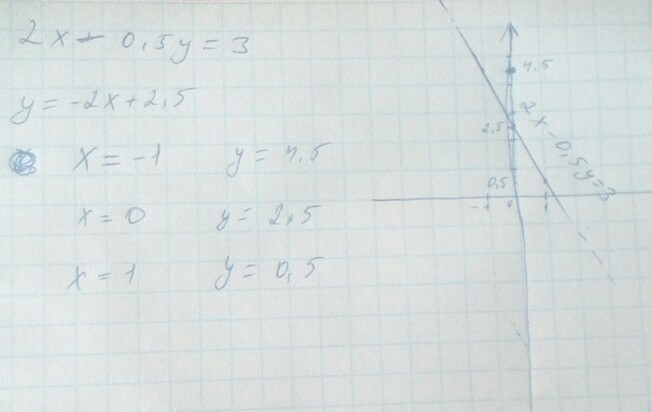 2x - 0,5y = 3
y = -2x + 2,5
x = -1 y = 4,5
x = 0 y = 2,5
x = 1 y = 0,5
4,5
2,5
2x - 0,5y = 3
0,5
-1 0 1